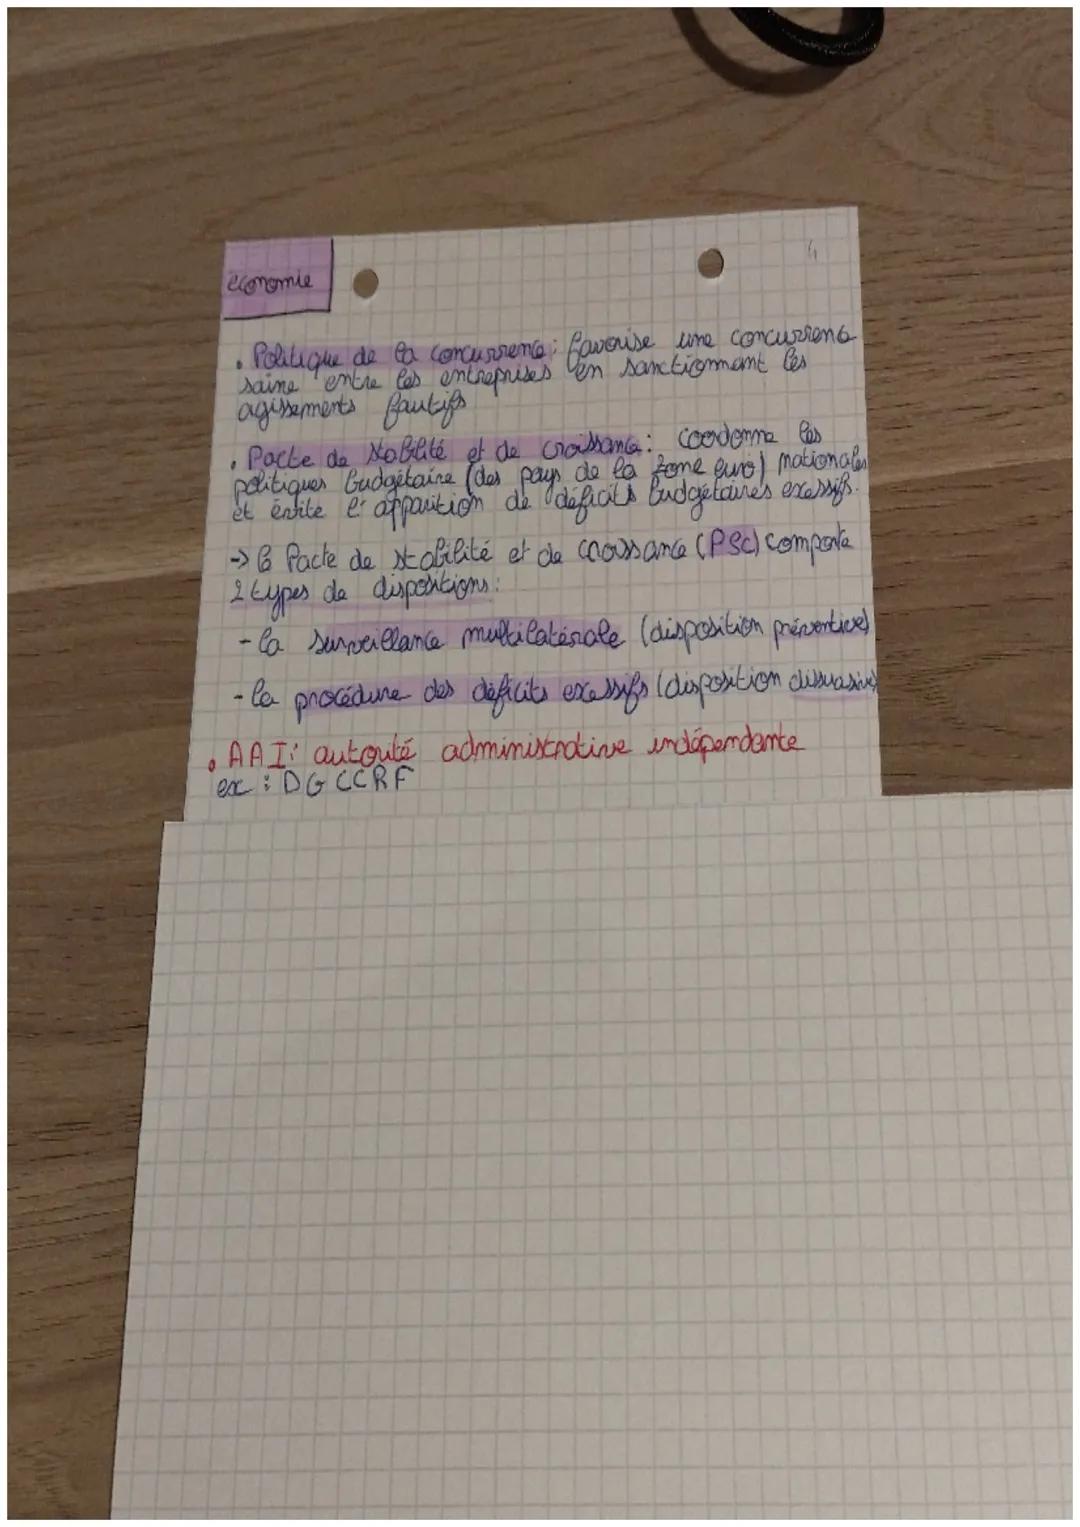 économie
4
• Politique de la concurrence : favorise une concurrence
saine entre les entreprises en sanctionnant les
agissements fautifs
• Pacte de stabilité et de croissance : coordonne les
politiques budgétaire (des pays de la zone euro) nationales
et évite l'apparition de déficits budgétaires excessifs.
-> le Pacte de stabilité et de croissance (PSC) comporte
2 types de dispositions :
- la surveillance multilatérale (disposition préventive)
- la procédure des déficits excessifs (disposition dissuasive)
• AAI : autorité administrative indépendante
ex : DGCCRF